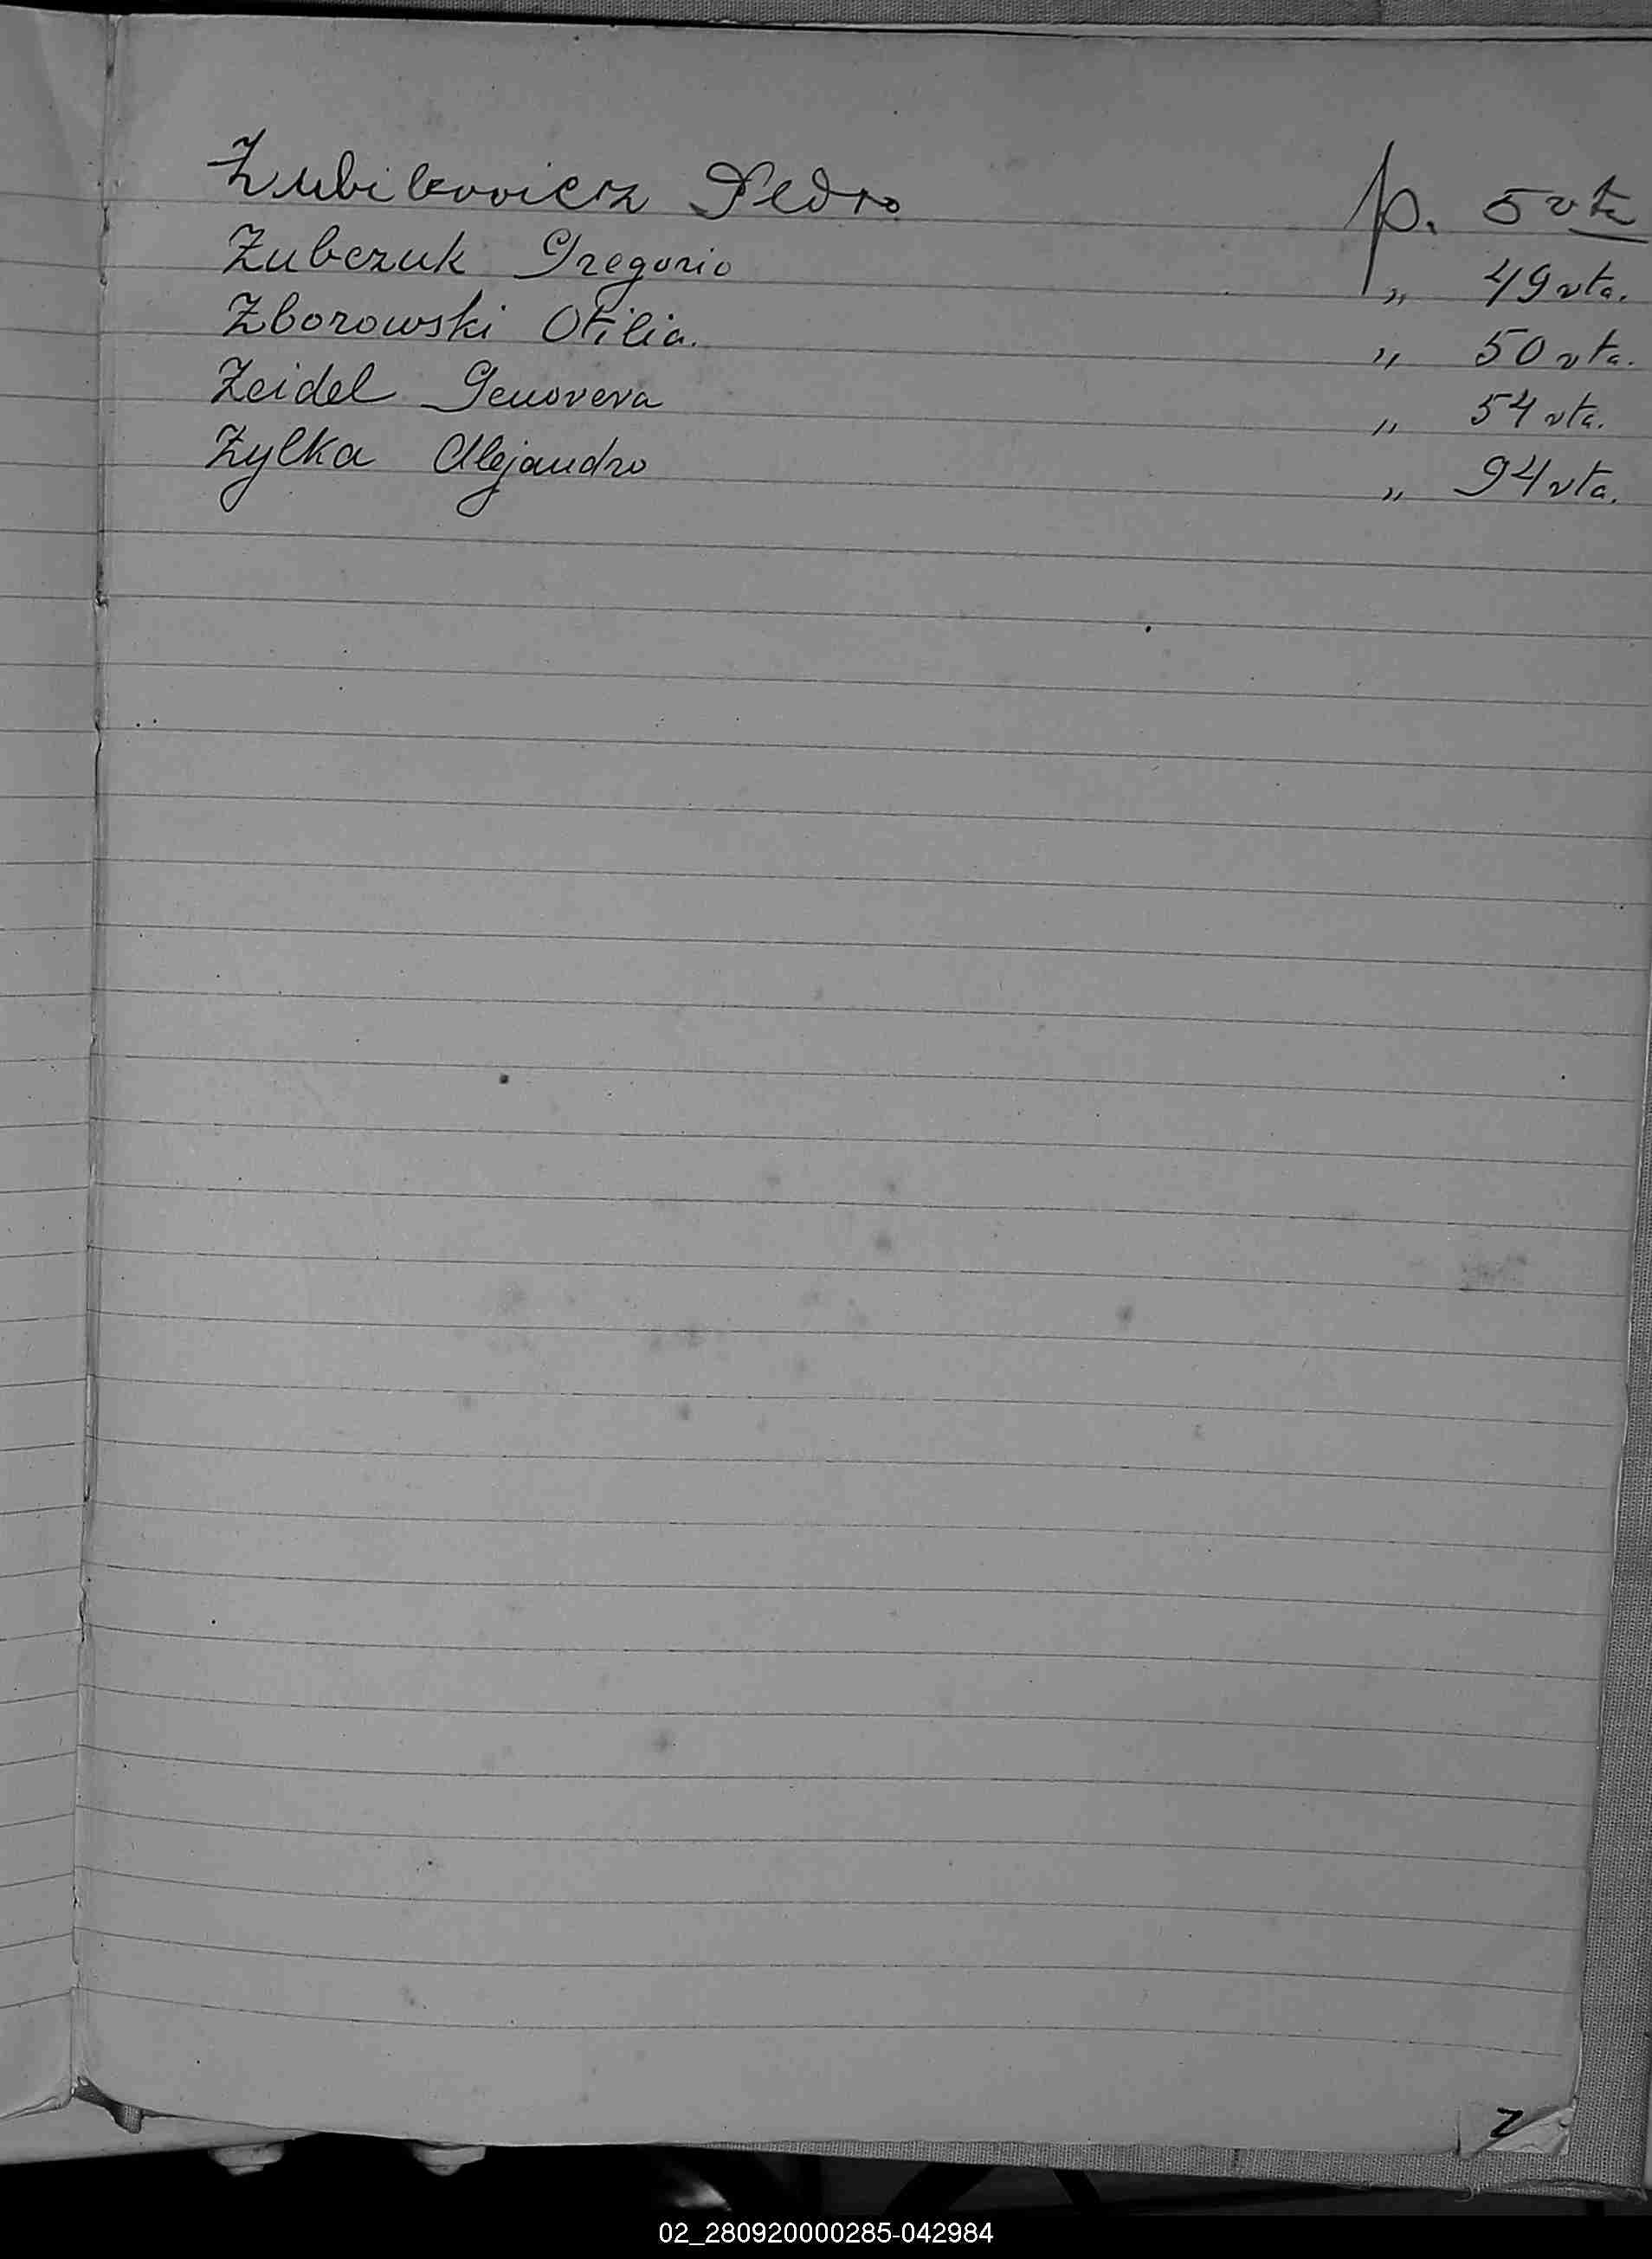 Zubikowicz Pedro p. 5 vta
Zubczuk Gregorio „ 49 vta.
Zborowski Otilia. „ 50 vta.
Zeidel Genoveva „ 54 vta.
Zylka Alejandro „ 94 vta.
Z
02_280920000285-042984